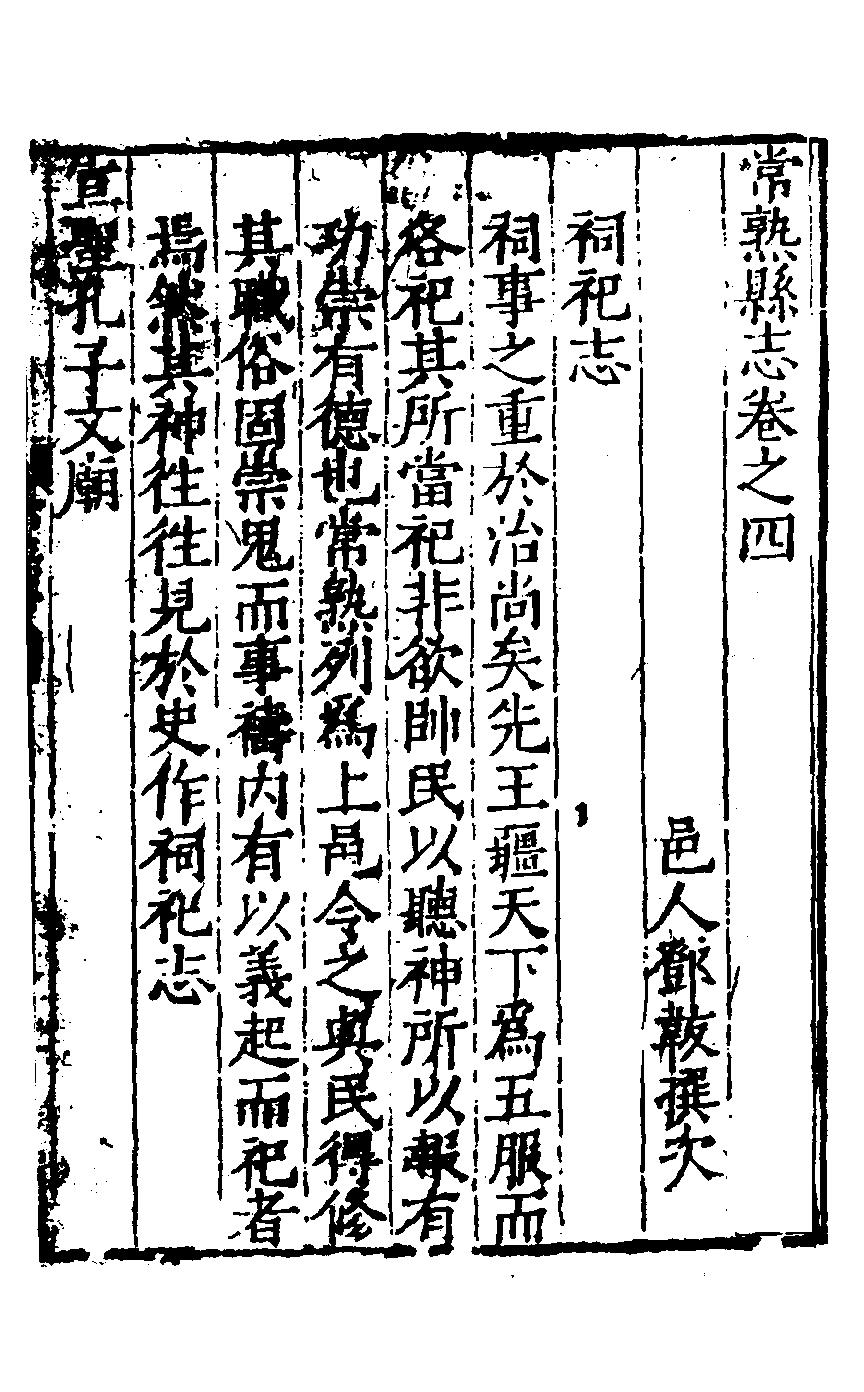 常熟縣志卷之四
邑人鄧韍撰次
祠祀志
祠事之重於治尚矣先王疆天下爲五服而
各祀其所當祀非欲帥民以聽神所以報有
功崇有德也常熟列爲上邑令之與民得修
其職俗固崇鬼而事禱内有以義起而祀者
焉然其神徃徃見於史作祠祀志
宣聖孔子文廟